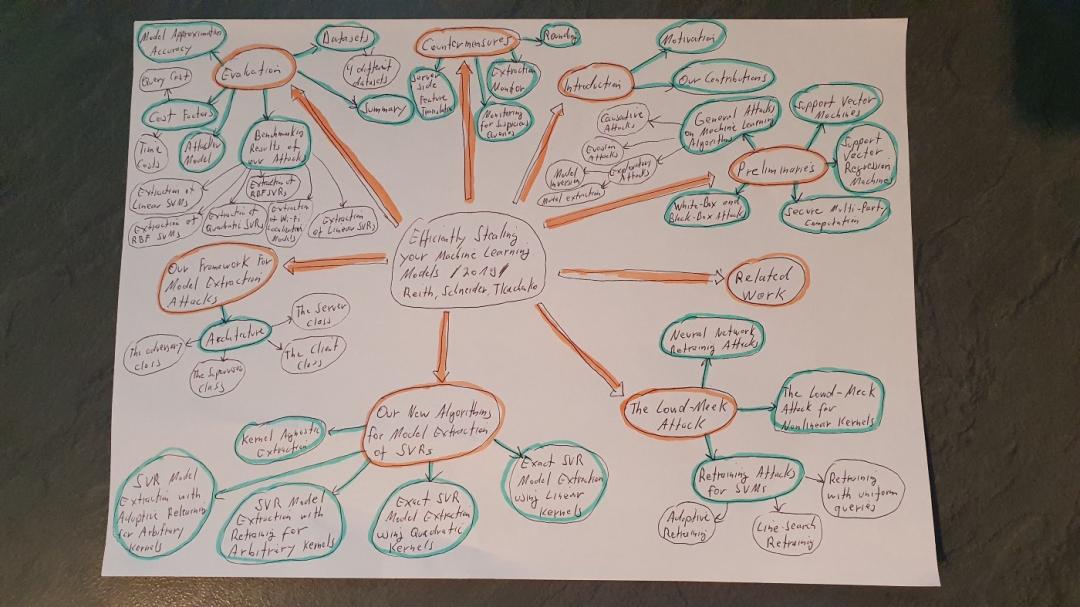 Model Approximation
Accuracy
Evaluation
Datasets
4 different
datasets
Summary
Query Cost
Cost Factors
Time
Costs
Attacker
Model
Benchmarking
Results of
our Attacks
Extraction of
Linear SVMs
Extraction of
RBF SVMs
Extraction of
Quadratic SVRs
Extraction of
RBF SVRs
Extraction
of Wi-Fi
Localization
Models
Extraction
of Linear SVRs
Countermeasures
Rounding
Server
side
Feature
Translation
Extraction
Monitor
Monitoring
for Suspicious
Queries
Introduction
Motivation
Our Contributions
Preliminaries
General Attacks
on Machine Learning
Algorithms
Causative
Attacks
Evasion
Attacks
Exploratory
Attacks
Model
Inversion
Model extraction
Support Vector
Machines
Support
Vector
Regression
Machines
White-Box and
Black-Box Attacks
Secure Multi-Party
Computation
Efficiently Stealing
your Machine Learning
Models /2019/
Reith, Schneider, Tkachenko
Related
Work
Our Framework for
Model Extraction
Attacks
Architecture
The Server
Class
The Client
Class
The Supervisor
Class
The adversary
class
Our New Algorithms
for Model Extraction
of SVRs
Kernel Agnostic
Extraction
SVR Model
Extraction with
Adaptive Retraining
for Arbitrary
Kernels
SVR Model
Extraction with
Retraining for
Arbitrary Kernels
Exact SVR
Model Extraction
using Quadratic
Kernels
Exact SVR
Model Extraction
using Linear
Kernels
The Lowd-Meek
Attack
Neural Network
Retraining Attacks
The Lowd-Meek
Attack for
Nonlinear Kernels
Retraining Attacks
for SVMs
Adaptive
Retraining
Line-Search
Retraining
Retraining
with uniform
queries